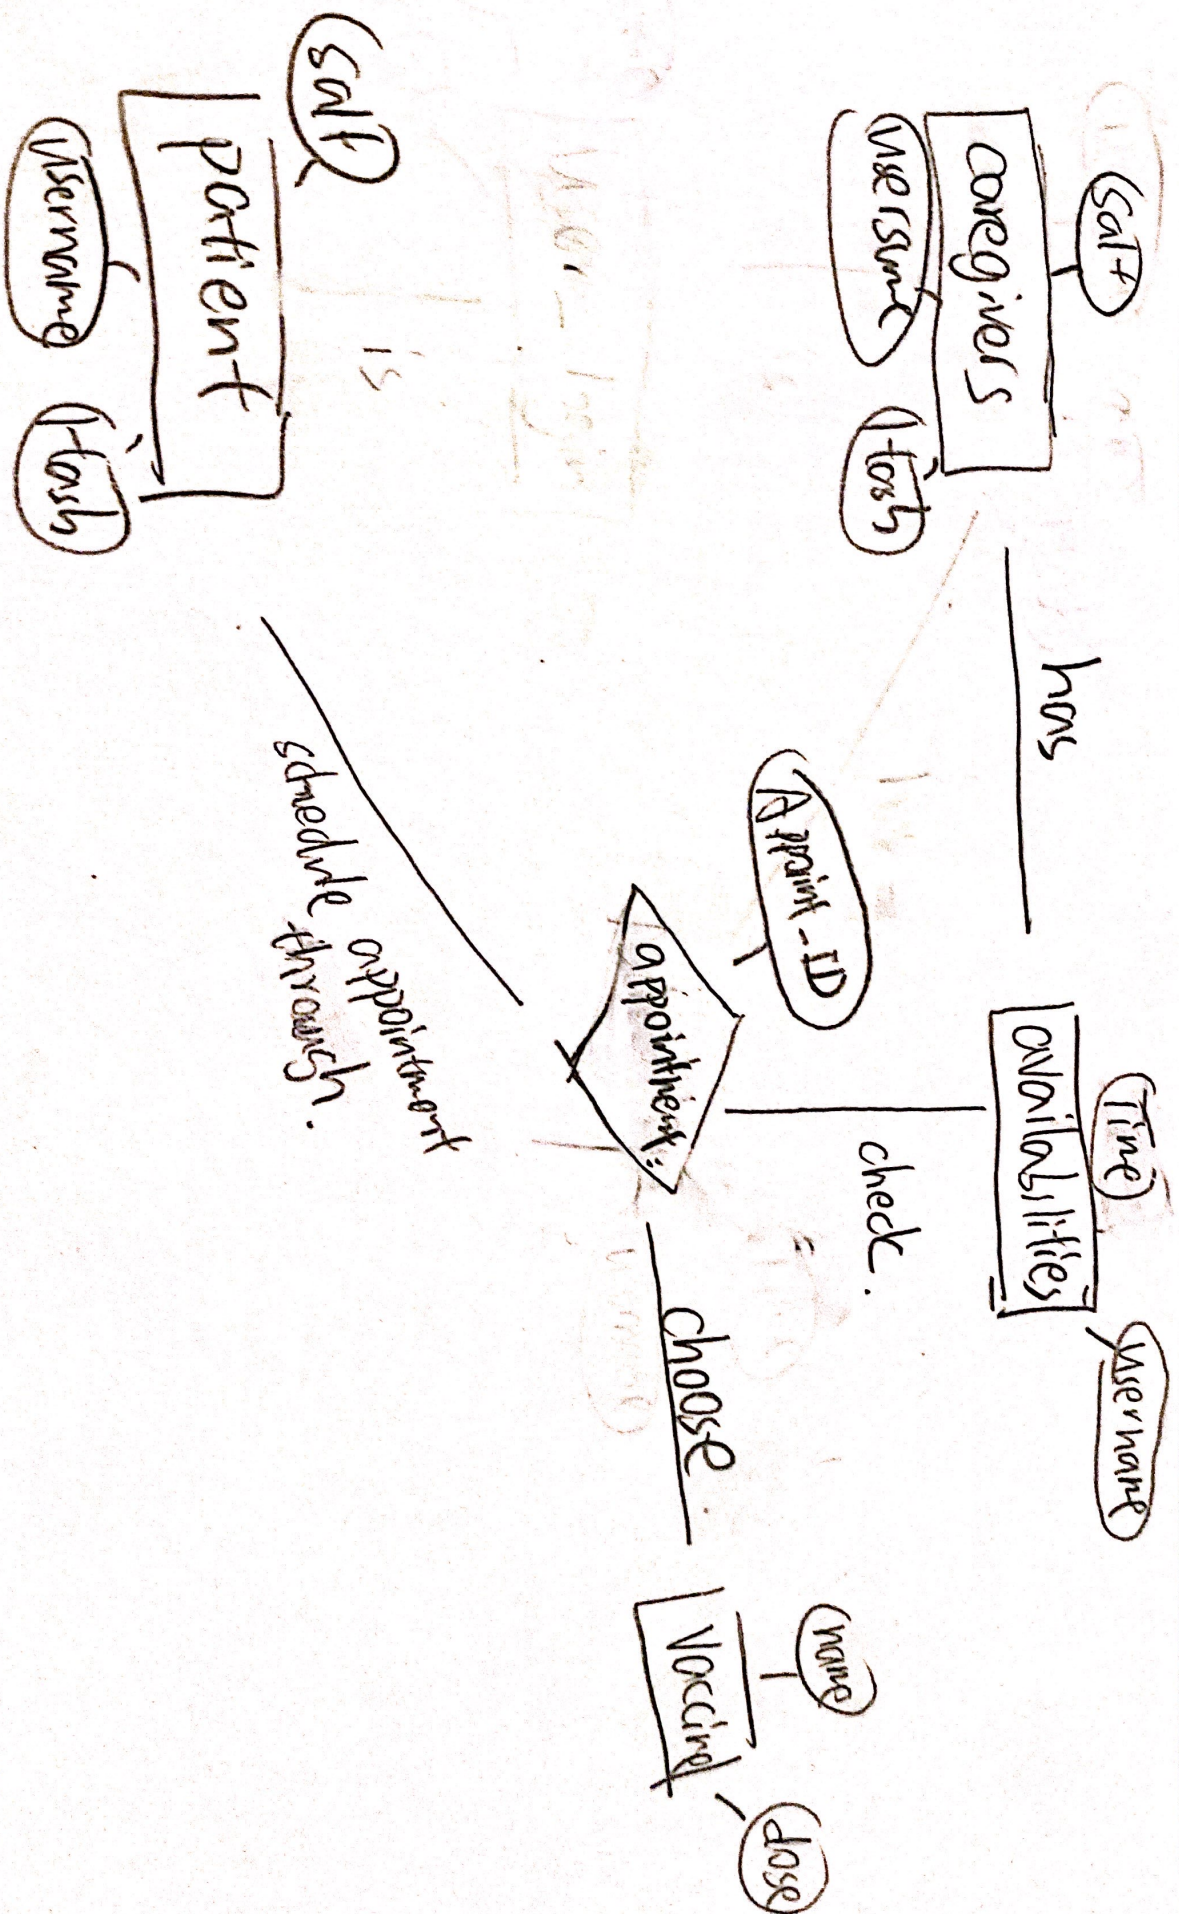 salt
caregivers
userssme
Hash
has
Time
availabilities
username
Appoint-ID
check.
appointment:
choose
name
Vaccine
dose
salt
is
patient
username
Hash
schedule appointment
through.